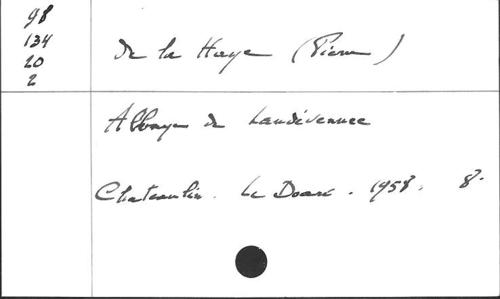 98
134
20
2
De la Haye (Pierre)
Abbaye de Landévennec
Chateaulin. Le Doaré. 1958. 8.